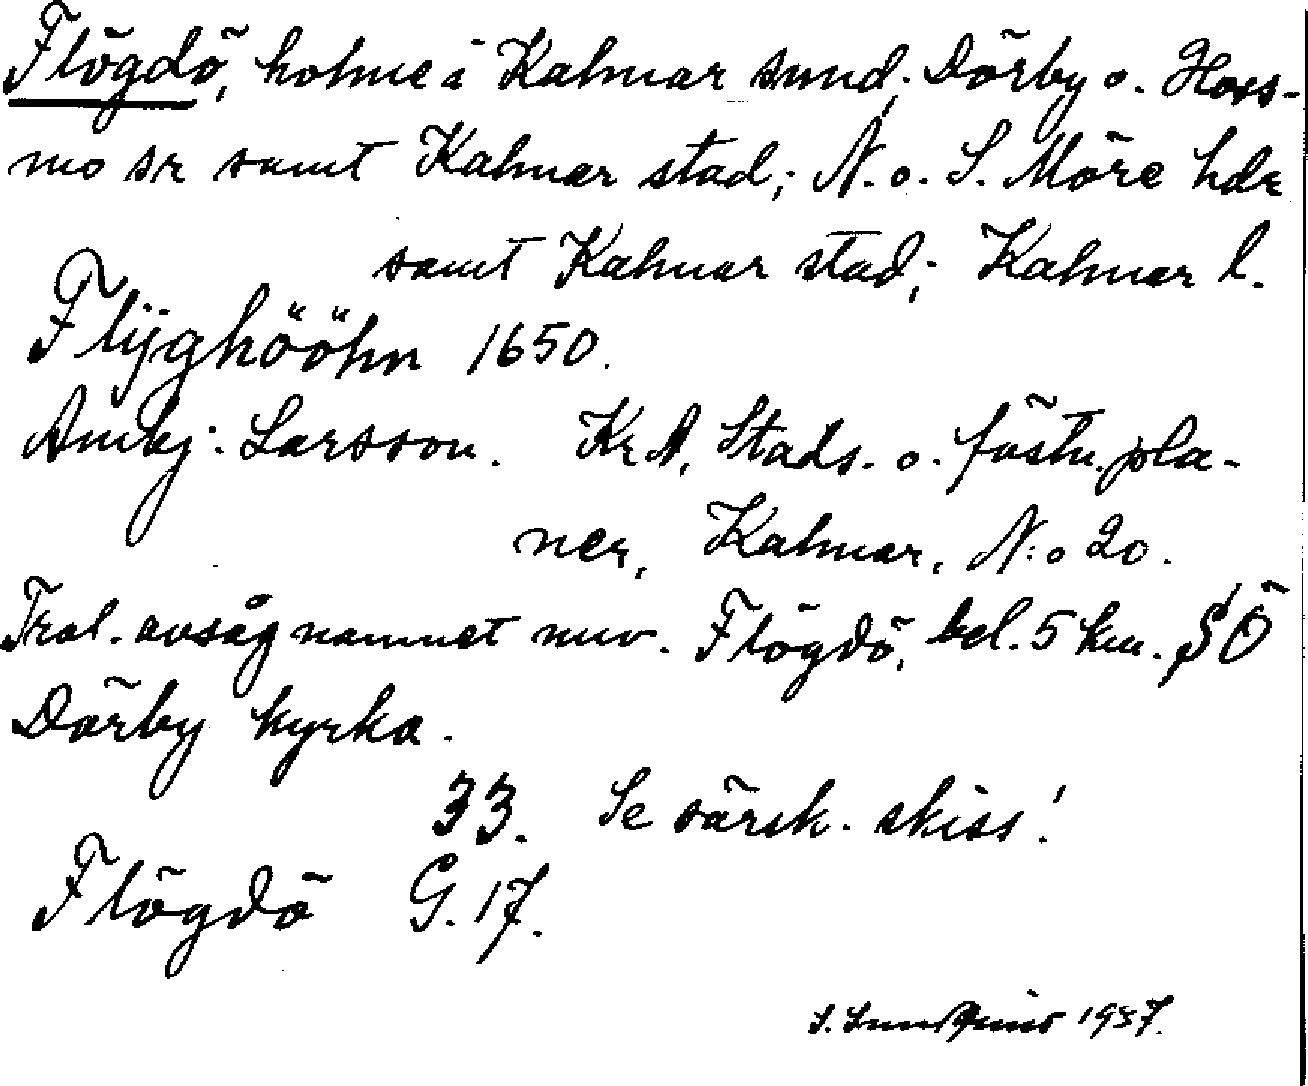 Flögdö, holme i Kalmar sund; Dörby o. Hoss-
mo sr samt Kalmar stad; N. o. S. Möre hdr
samt Kalmar stad; Kalmar l.
Flÿghööhn 1650.
Anthj: Larsson. KrA, Stads- o. fästn.pla-
ner, Kalmar, N:o 20.
Trol. avsåg namnet nuv. Flögdö, bel. 5 km. SÖ
Dörby kyrka.
33. Se särsk. skiss!
Flögdö G. 17.
S. 1937.